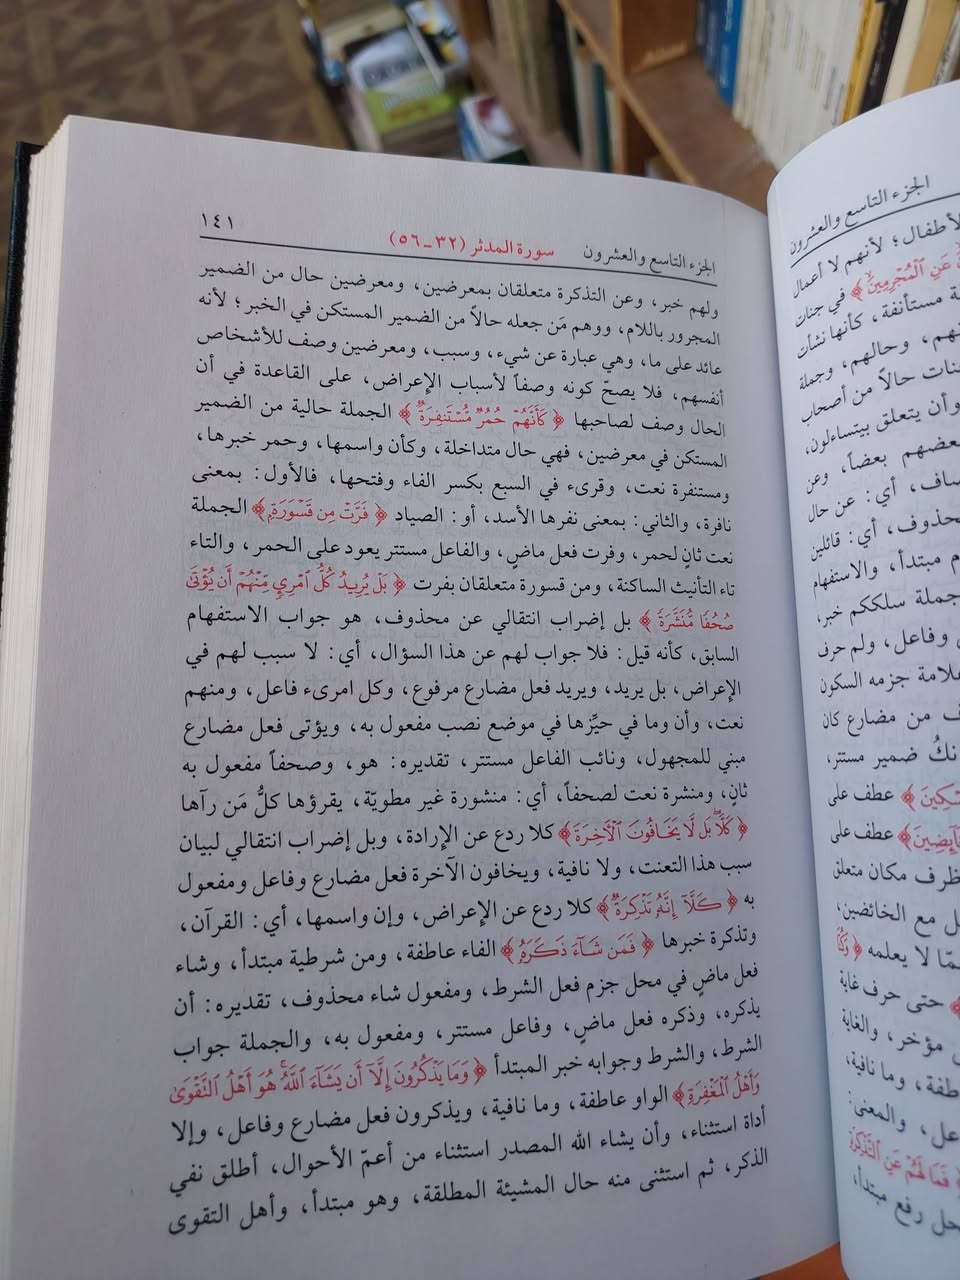 الجزء التاسع والعشرون سورة المدثر (٣٢-٥٦) ١٤١
ولهم خبر، وعن التذكرة متعلقان بمعرضين، ومعرضين حال من الضمير
المجرور باللام، ووهم مَن جعله حالاً من الضمير المستكن في الخبر؛ لأنه
عائد على ما، وهي عبارة عن شيء، وسبب، ومعرضين وصف للأشخاص
أنفسهم، فلا يصحّ كونه وصفاً لأسباب الإعراض، على القاعدة في أن
الحال وصف لصاحبها ﴿ كَأَنَّهُمْ حُمُرٌ مُّسْتَنفِرَةٌ ﴾ الجملة حالية من الضمير
المستكن في معرضين، فهي حال متداخلة، وكأن واسمها، وحمر خبرها،
ومستنفرة نعت، وقرىء في السبع بكسر الفاء وفتحها، فالأول: بمعنى
نافرة، والثاني: بمعنى نفرها الأسد، أو: الصياد ﴿ فَرَّتْ مِن قَسْوَرَةٍ ﴾ الجملة
نعت ثانٍ لحمر، وفرت فعل ماضٍ، والفاعل مستتر يعود على الحمر، والتاء
تاء التأنيث الساكنة، ومن قسورة متعلقان بفرت ﴿ بَلْ يُرِيدُ كُلُّ ٱمْرِئٍ مِّنْهُمْ أَن يُؤْتَىٰ
صُحُفًا مُّنَشَّرَةً ﴾ بل إضراب انتقالي عن محذوف، هو جواب الاستفهام
السابق، كأنه قيل: فلا جواب لهم عن هذا السؤال، أي: لا سبب لهم في
الإعراض، بل يريد، ويريد فعل مضارع مرفوع، وكل امرىء فاعل، ومنهم
نعت، وأن وما في حيِّزها في موضع نصب مفعول به، ويؤتى فعل مضارع
مبني للمجهول، ونائب الفاعل مستتر، تقديره: هو، وصحفاً مفعول به
ثانٍ، ومنشرة نعت لصحفاً، أي: منشورة غير مطويّة، يقرؤها كلُّ مَن رآها
﴿ كَلَّا بَل لَّا يَخَافُونَ ٱلْآخِرَةَ ﴾ كلا ردع عن الإرادة، وبل إضراب انتقالي لبيان
سبب هذا التعنت، ولا نافية، ويخافون الآخرة فعل مضارع وفاعل ومفعول
به ﴿ كَلَّآ إِنَّهُۥ تَذْكِرَةٌ ﴾ كلا ردع عن الإعراض، وإن واسمها، أي: القرآن،
وتذكرة خبرها ﴿ فَمَن شَآءَ ذَكَرَهُۥ ﴾ الفاء عاطفة، ومن شرطية مبتدأ، وشاء
فعل ماضٍ في محل جزم فعل الشرط، ومفعول شاء محذوف، تقديره: أن
يذكره، وذكره فعل ماضٍ، وفاعل مستتر، ومفعول به، والجملة جواب
الشرط، والشرط وجوابه خبر المبتدأ ﴿ وَمَا يَذْكُرُونَ إِلَّآ أَن يَشَآءَ ٱللَّهُ هُوَ أَهْلُ ٱلتَّقْوَىٰ
وَأَهْلُ ٱلْمَغْفِرَةِ ﴾ الواو عاطفة، وما نافية، ويذكرون فعل مضارع وفاعل، وإلا
أداة استثناء، وأن يشاء الله المصدر استثناء من أعمّ الأحوال، أطلق نفي
الذكر، ثم استثنى منه حال المشيئة المطلقة، وهو مبتدأ، وأهل التقوى
الجزء التاسع والعشرون
الأطفال؛ لأنهم لا أعمال
عَنِ ٱلْمُجْرِمِينَ ﴾ في جنات
مستأنفة، كأنها نشأت
وحالهم، وجملة
حالاً من أصحاب
وأن يتعلق بيتساءلون،
بعضهم بعضاً، وعن
أي: عن حال
محذوف، أي: قائلين
مبتدأ، والاستفهام
جملة سلككم خبر،
وفاعل، ولم حرف
علامة جزمه السكون
من مضارع كان
نكُ ضمير مستتر،
﴾ عطف على
﴾ عطف على
ظرف مكان متعلق
مع الخائضين،
لا يعلمه ﴿
﴾ حتى حرف غاية
مؤخر، والغاية
وما نافية،
والمعنى:
﴿ فَمَا لَهُمْ عَنِ ٱلتَّذْكِرَةِ
رفع مبتدأ،